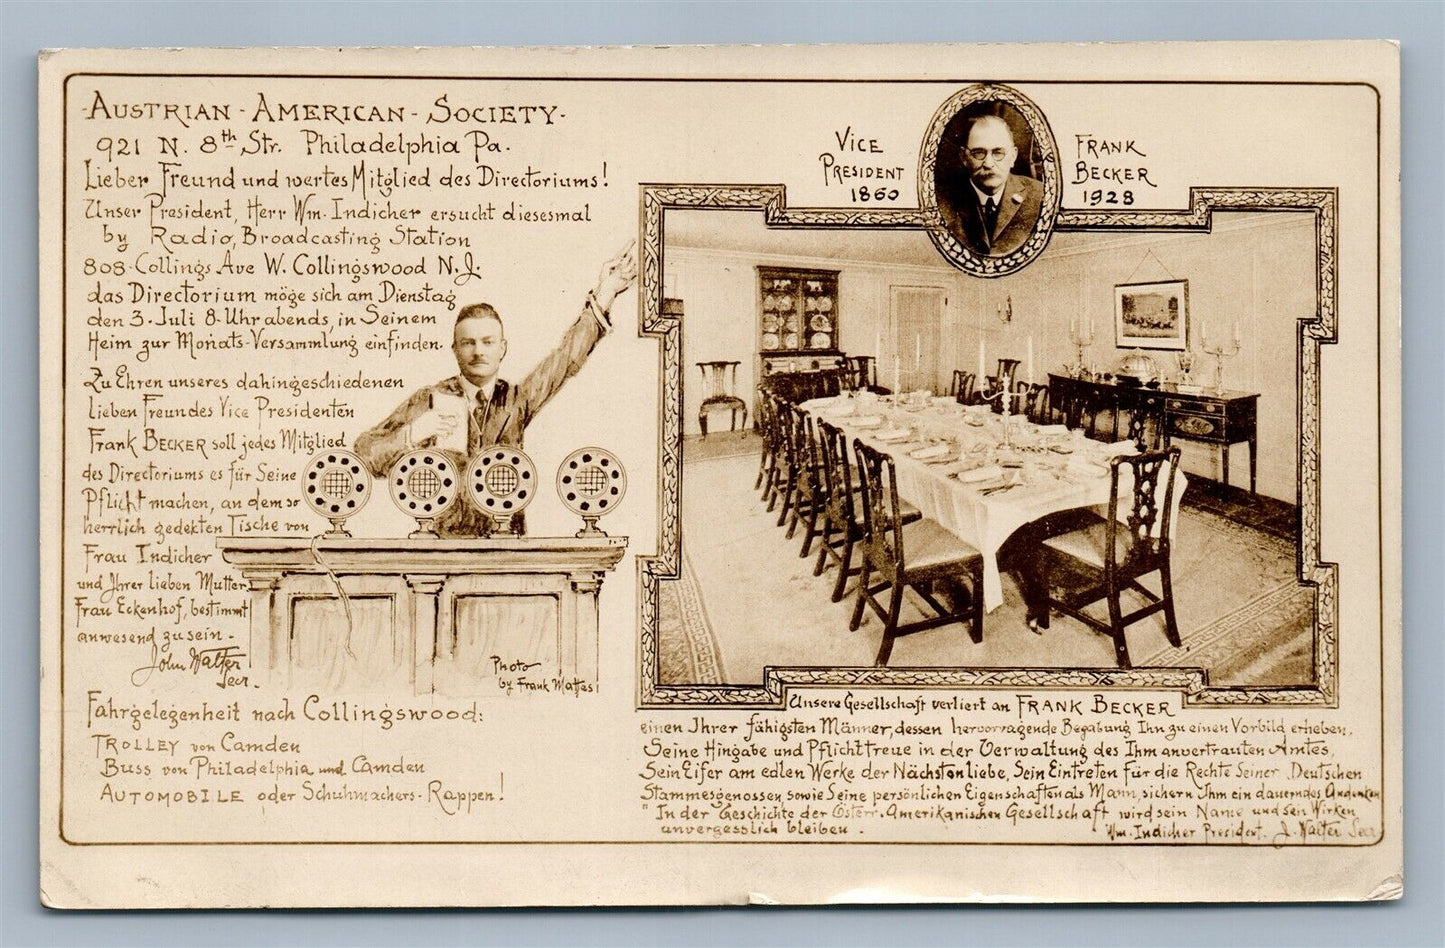 -AUSTRIAN-AMERICAN-SOCIETY-
921 N. 8th Str. Philadelphia Pa.
Lieber Freund und wertes Mitglied des Directoriums!
Unser President, Herr Wm. Indicher ersucht diesesmal
by Radio, Broadcasting Station
808-Collings Ave W. Collingswood N.J.
das Directorium möge sich am Dienstag
den 3. Juli 8-Uhr abends, in Seinem
Heim zur Monats-Versammlung einfinden.
Zu Ehren unseres dahingeschiedenen
lieben Freundes Vice Presidenten
Frank BECKER soll jedes Mitglied
des Directoriums es für Seine
Pflicht machen, an dem so
herrlich gedekten Tische von
Frau Indicher
und Ihrer lieben Mutter
Frau Eckenhof, bestimmt
anwesend zu sein -
John Walter
Secr.
Photo
by Frank Mattes
Fahrgelegenheit nach Collingswood:
TROLLEY von Camden
Buss von Philadelphia und Camden
AUTOMOBILE oder Schuhmachers-Rappen!
VICE
PRESIDENT
1860
FRANK
BECKER
1928
Unsere Gesellschaft verliert an FRANK BECKER
einen Ihrer fähigsten Männer, dessen hervorragende Begabung Ihn zu einen Vorbild erheben.
Seine Hingabe und Pflichttreue in der Verwaltung des Ihm anvertrauten Amtes,
Sein Eifer am edlen Werke der Nächstenliebe, Sein Eintreten für die Rechte Seiner Deutschen
Stammesgenossen, sowie Seine persönlichen Eigenschaften als Mann, sichern Ihm ein dauerndes Andenken
" In der Geschichte der Österr. Amerikanischen Gesellschaft wird sein Name und sein Wirken
unvergesslich bleiben.
Wm. Indicher President. J. Walter Secr